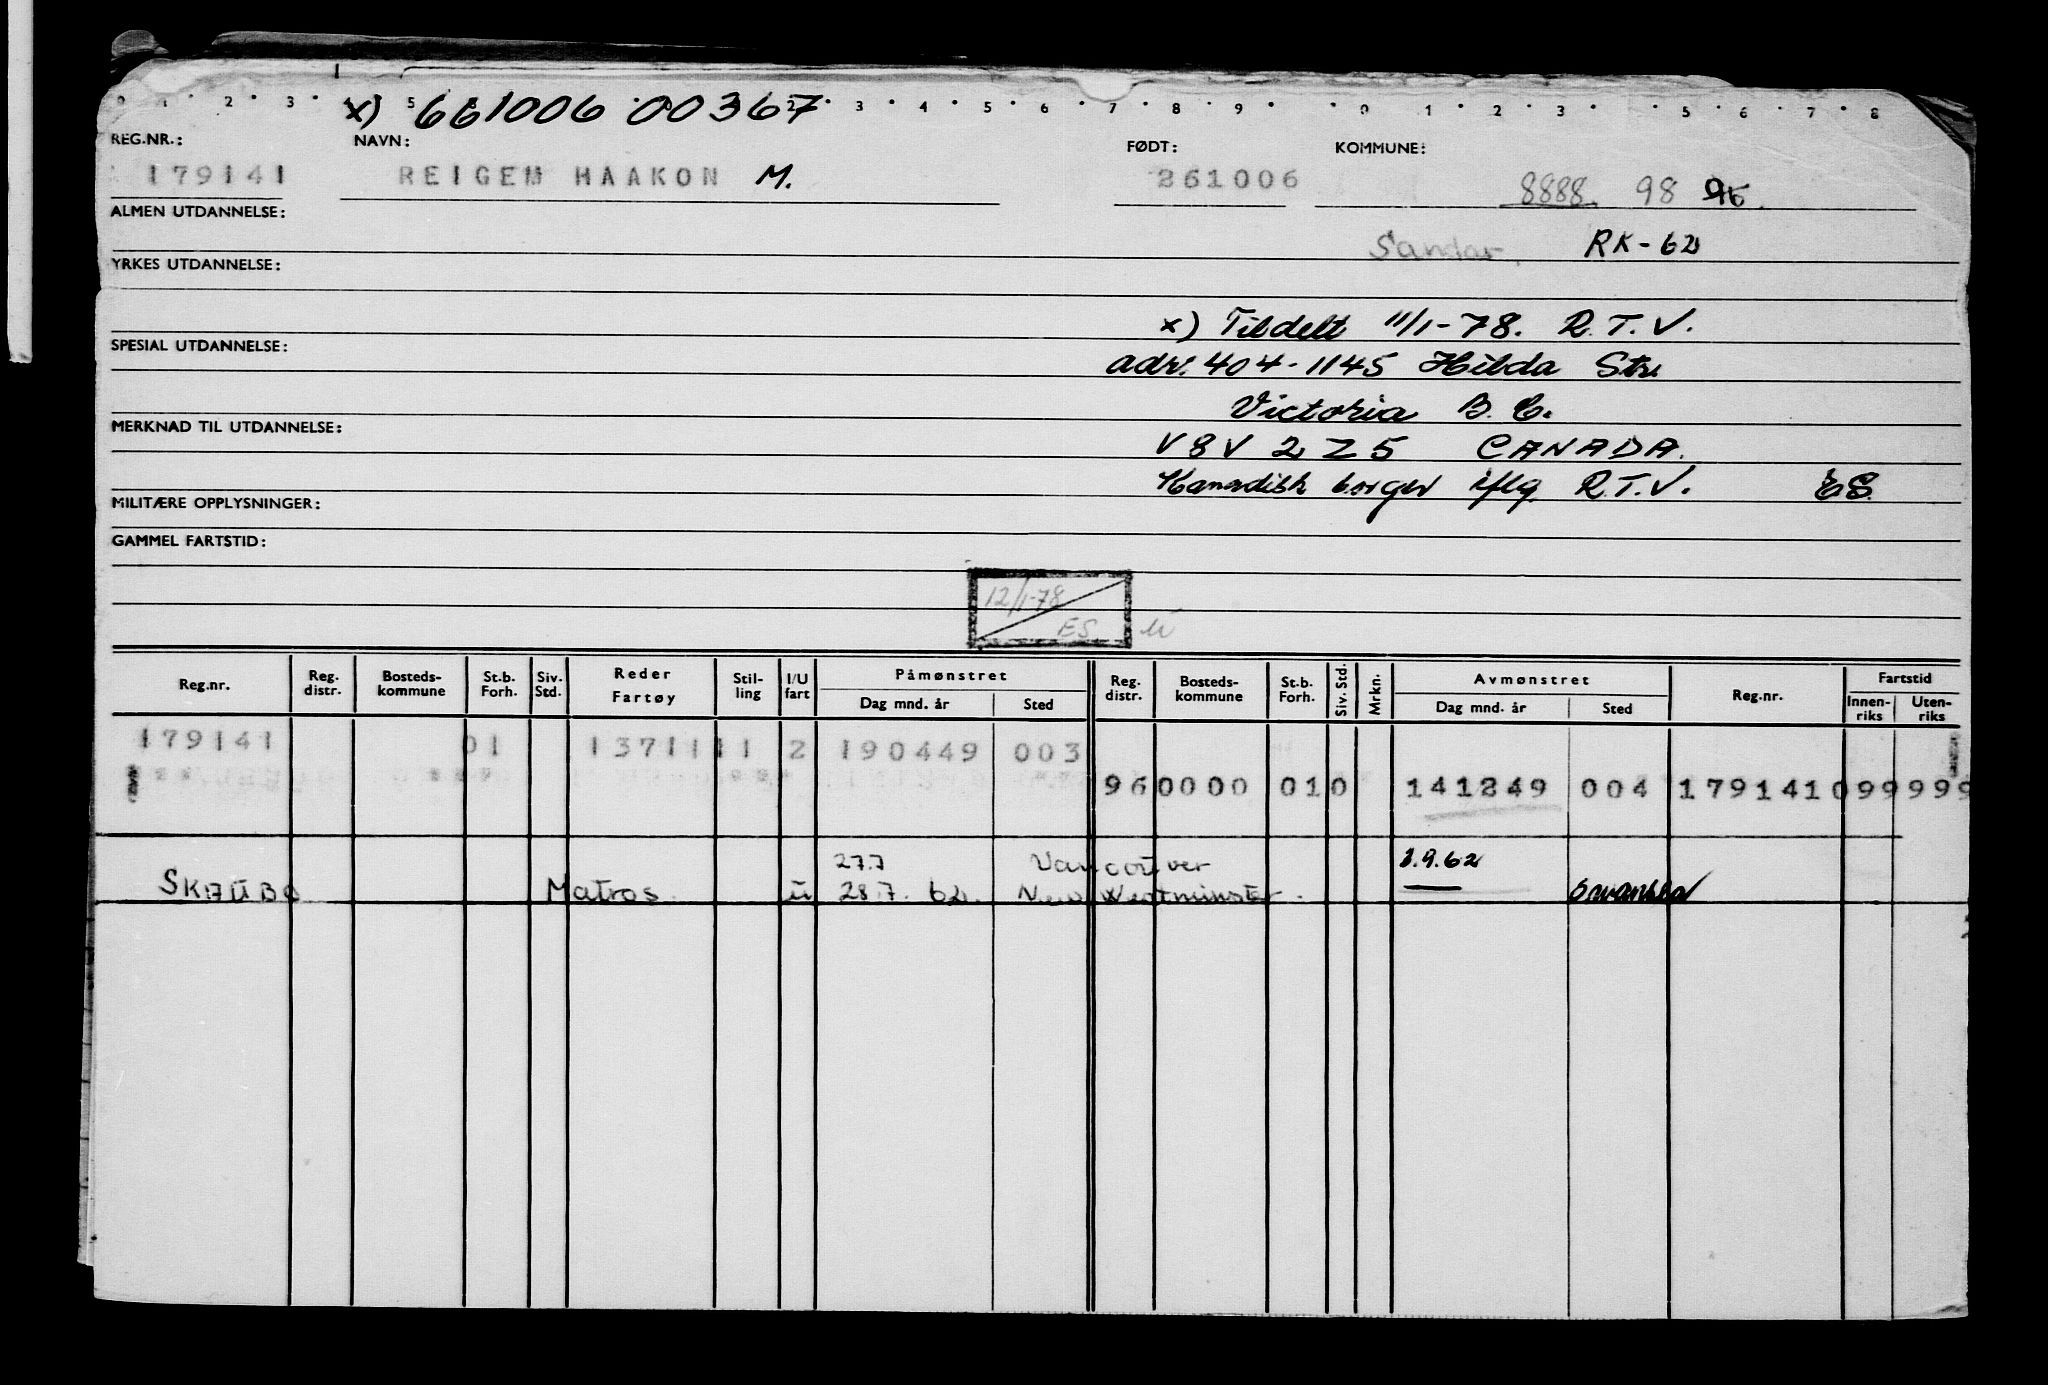 0 1 2 3 5 2 3 4 5 6 7 8 9 0 1 2 3 5 6 7 8
x) 661006 00367
REG.NR.: NAVN: FØDT: KOMMUNE:
179141 REIGEM HAAKON M. 261006 8888. 98 96.
ALMEN UTDANNELSE:
Sandar. RK-62
YRKES UTDANNELSE:
x) Tildelt 11/1-78. R.T.V.
SPESIAL UTDANNELSE:
adr. 404-1145 Hilda Str.
Victoria B.C.
MERKNAD TIL UTDANNELSE:
V8V 2Z5 CANADA.
Kanadisk borger iflg. R.T.V. ES.
MILITÆRE OPPLYSNINGER:
GAMMEL FARTSTID:
12/1-78
ES
Reg.nr. Reg. distr. Bosteds-kommune St.b. Forh. Siv. Std. Reder Fartøy Stil-ling I/U fart Påmønstret Dag mnd. år Sted Reg. distr. Bosteds-kommune St.b. Forh. Siv. Std. Mrkn. Avmønstret Dag mnd. år Sted Reg.nr. Fartstid Innen-riks Uten-riks
179141 01 1371111 2 190449 003
960000 010 141249 004 179141099999
27.7 Vancouver 1.9.62
SKAUBO Matros u 28.7. 62. New Westminster. Swansea